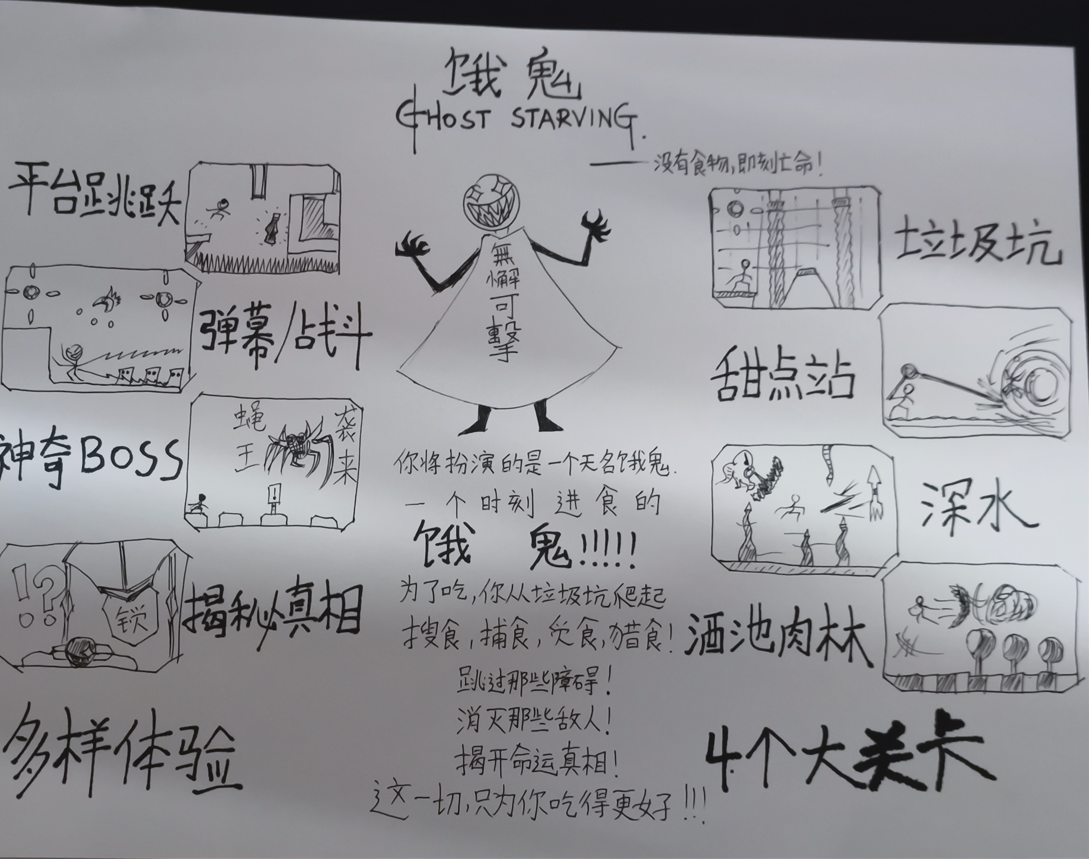 饿鬼
GHOST STARVING.
——没有食物,即刻亡命!
平台跳跃
弹幕/战斗
神奇BOSS
蝇王
袭来
!?
锁
揭秘真相
多样体验
無懈可擊
你将扮演的是一个无名饿鬼.
一个时刻进食的
饿鬼!!!!!
为了吃,你从垃圾坑爬起
搜食,捕食,觅食,猎食!
跳过那些障碍!
消灭那些敌人!
揭开命运真相!
这一切,只为你吃得更好!!!
垃圾坑
甜点站
深水
酒池肉林
4个大关卡